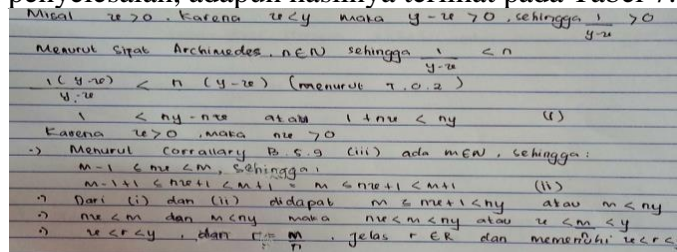 penyelesaian, adapun hasilnya terlihat pada Tabel 7.
Misal x > 0. Karena x < y maka y - x > 0, sehingga 1/(y-x) > 0
Menurut Sifat Archimedes, n ∈ N sehingga 1/(y-x) < n
1(y-x)/(y-x) < n (y-x) (menurut 7.0.2)
1 < ny - nx atau 1 + nx < ny (i)
Karena x > 0, maka nx > 0
-> Menurut Corrallary B.5.9 (iii) ada m ∈ N, sehingga:
m-1 ≤ nx < m, sehingga:
m-1+1 ≤ nx+1 < m+1 = m ≤ nx+1 < m+1 (ii)
-> Dari (i) dan (ii) didapat m ≤ nx+1 < ny atau m < ny
-> nx < m dan m < ny maka nx < m < ny atau x < m < y
-> x < r < y, dan r = m/n, jelas r ∈ R dan memenuhi x < r <